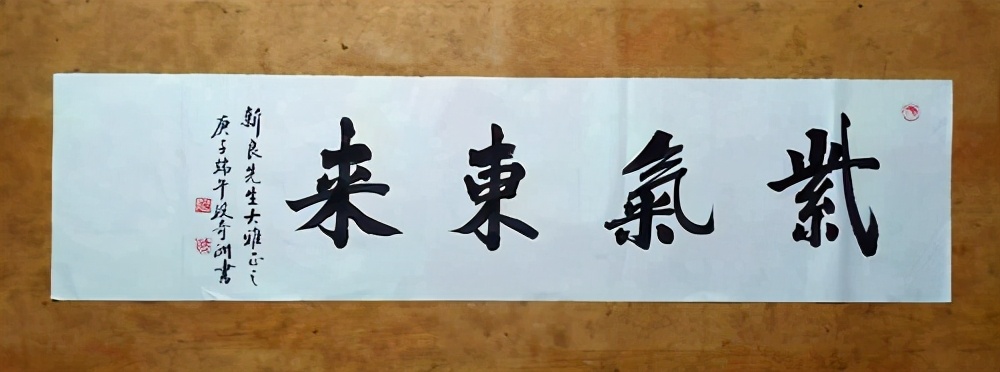 紫氣東来
新良先生大雅正之
庚子端午段奇洲書